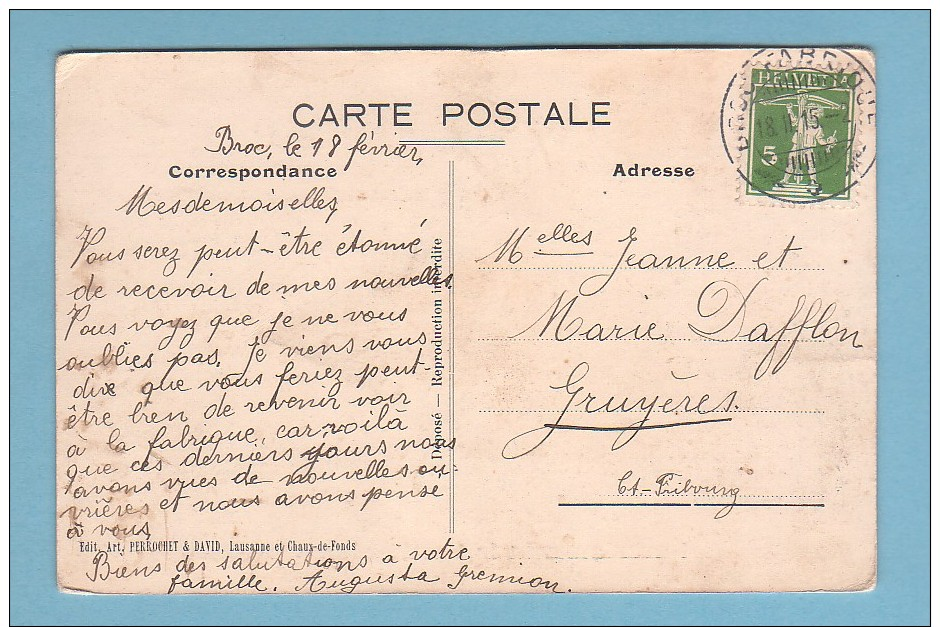 CARTE POSTALE
HELVETIA
5
BROC-FABRIQUE
18.II.15
Broc, le 18 février,
Correspondance
Mesdemoiselles,
Vous serez peut-être étonné
de recevoir de mes nouvelles.
Vous voyez que je ne vous
oublies pas. Je viens vous
dire que vous feriez peut-
être bien de revenir voir
à la fabrique, car voilà
que ces derniers jours nous
avons vues de nouvelles ou-
vrières et nous avons pensé
à vous,
Edit. Art. PERROCHET & DAVID, Lausanne et Chaux-de-Fonds
Biens des salutations à votre
famille. Augusta Gremion.
Déposé — Reproduction interdite
Adresse
Melles Jeanne et
Marie Dafflon
Gruyères.
Ct-Fribourg